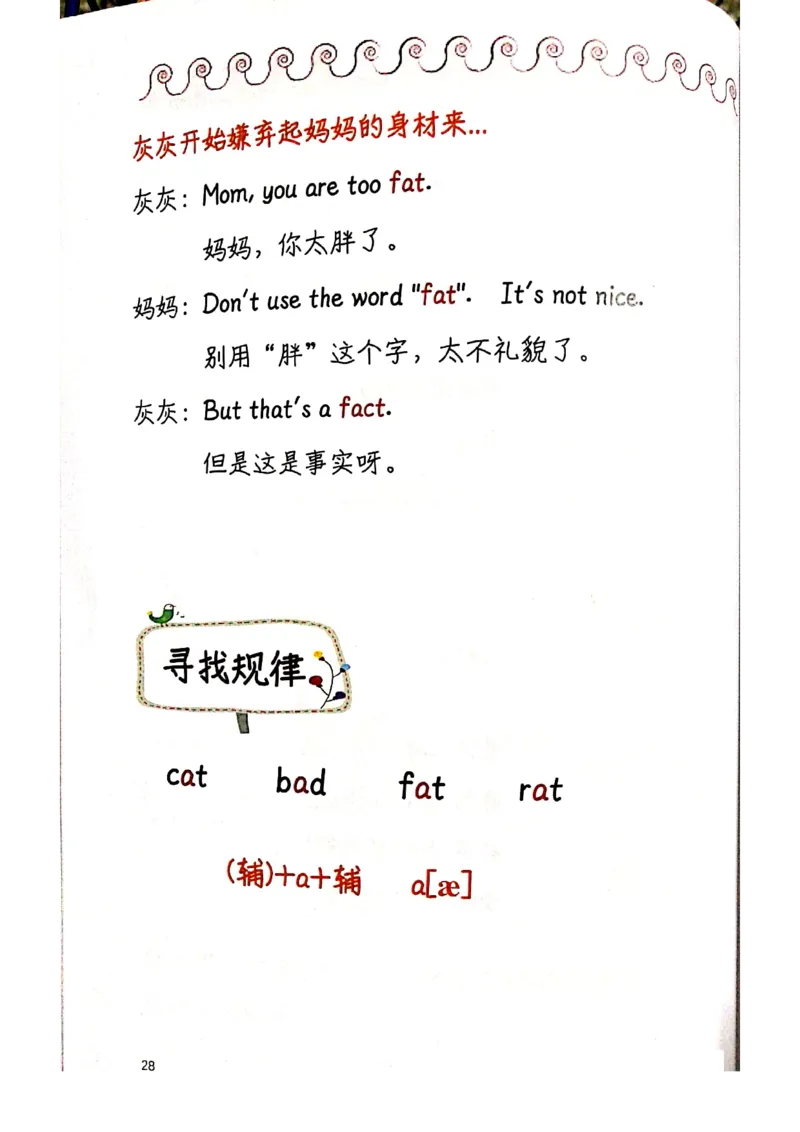 灰灰开始嫌弃起妈妈的身材来...
灰灰：Mom, you are too fat.
妈妈，你太胖了。
妈妈：Don't use the word "fat". It's not nice.
别用“胖”这个字，太不礼貌了。
灰灰：But that's a fact.
但是这是事实呀。
寻找规律
cat bad fat rat
(辅)+a+辅 a[æ]
28